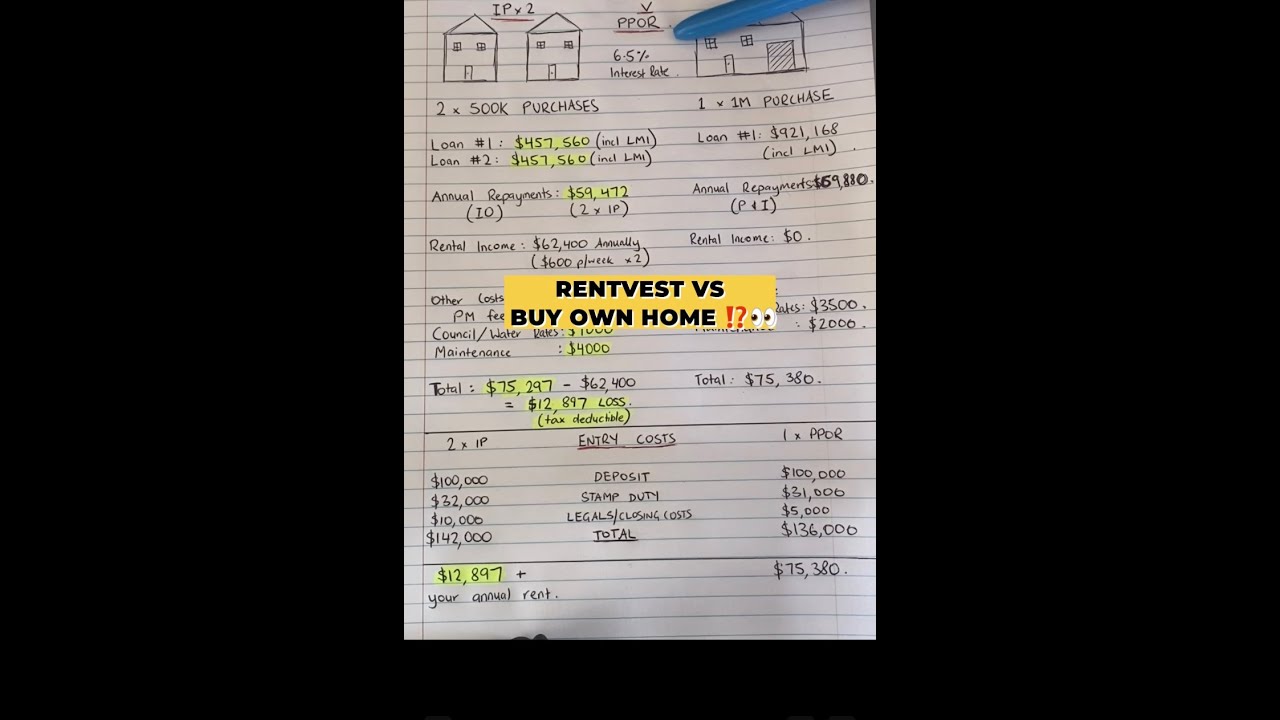 IP x 2
V
PPOR
6.5%
Interest Rate
2 x 500K PURCHASES
1 x 1M PURCHASE
Loan #1: $457,560 (incl LMI)
Loan #2: $457,560 (incl LMI)
Loan #1: $921,168
(incl LMI)
Annual Repayments: $59,472
(IO) (2 x IP)
Annual Repayments: $69,880.
(P & I)
Rental Income: $62,400 Annually
($600 p/week x2)
Rental Income: $0.
RENTVEST VS
BUY OWN HOME ⁉️👀
Other Costs
PM fee
Council/Water Rates: $7000
Maintenance : $4000
Rates: $3500.
: $2000.
Total: $75,297 - $62,400
= $12,897 LOSS.
(tax deductible)
Total: $75,380.
2 x IP ENTRY COSTS 1 x PPOR
$100,000 DEPOSIT $100,000
$32,000 STAMP DUTY $31,000
$10,000 LEGALS/CLOSING COSTS $5,000
$142,000 TOTAL $136,000
$12,897 + $75,380.
your annual rent.